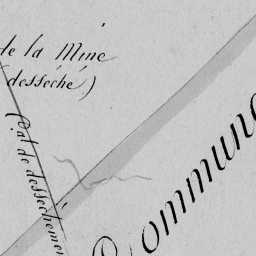 de la Mine
desséché)
(al de dessèchemen
Commun